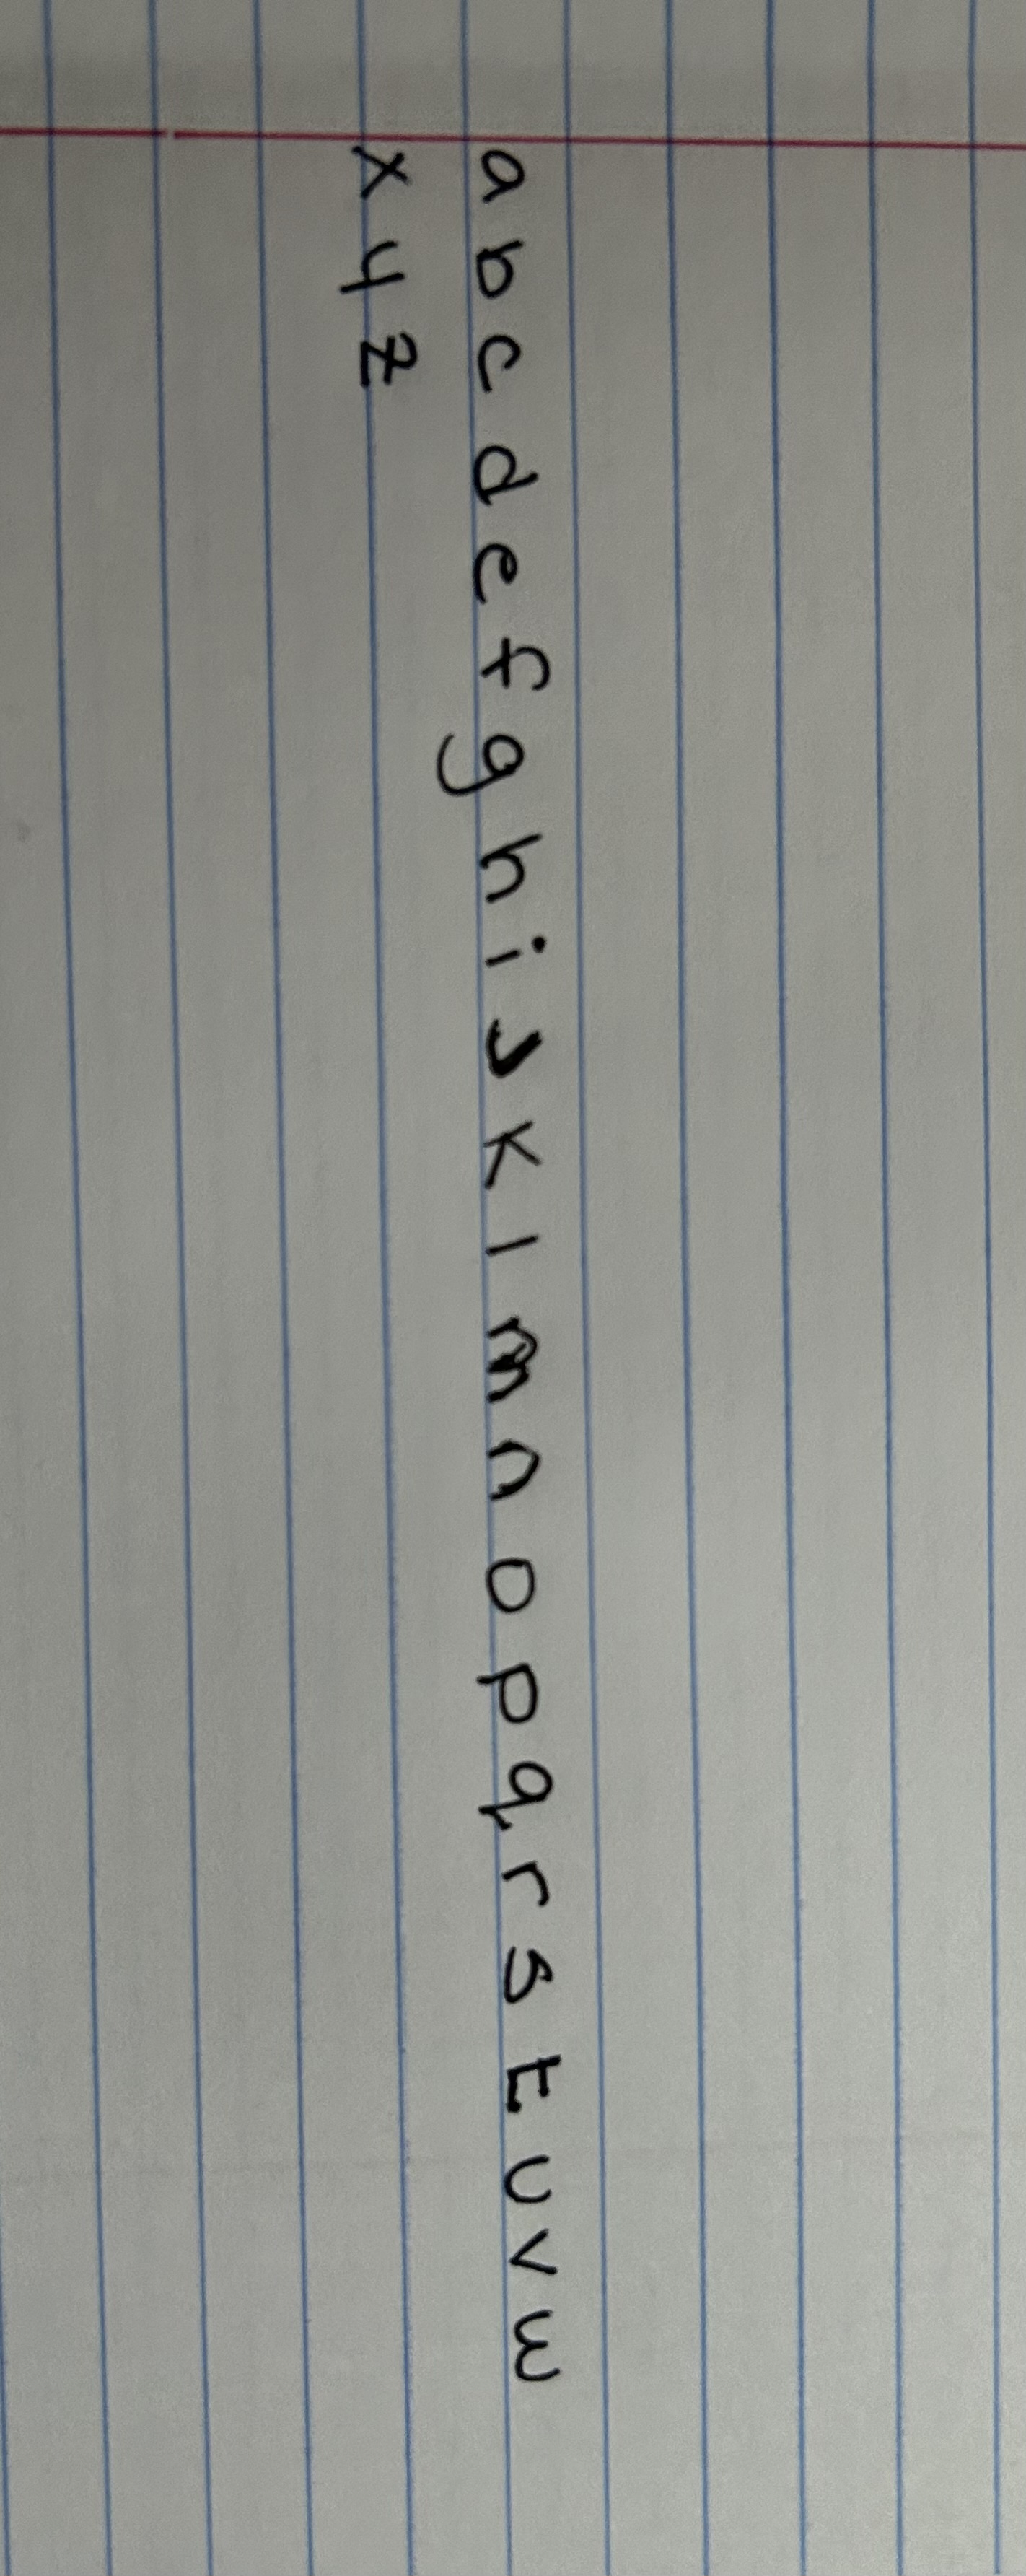 a b c d e f g h i j k l m n o p q r s t u v w
x y z